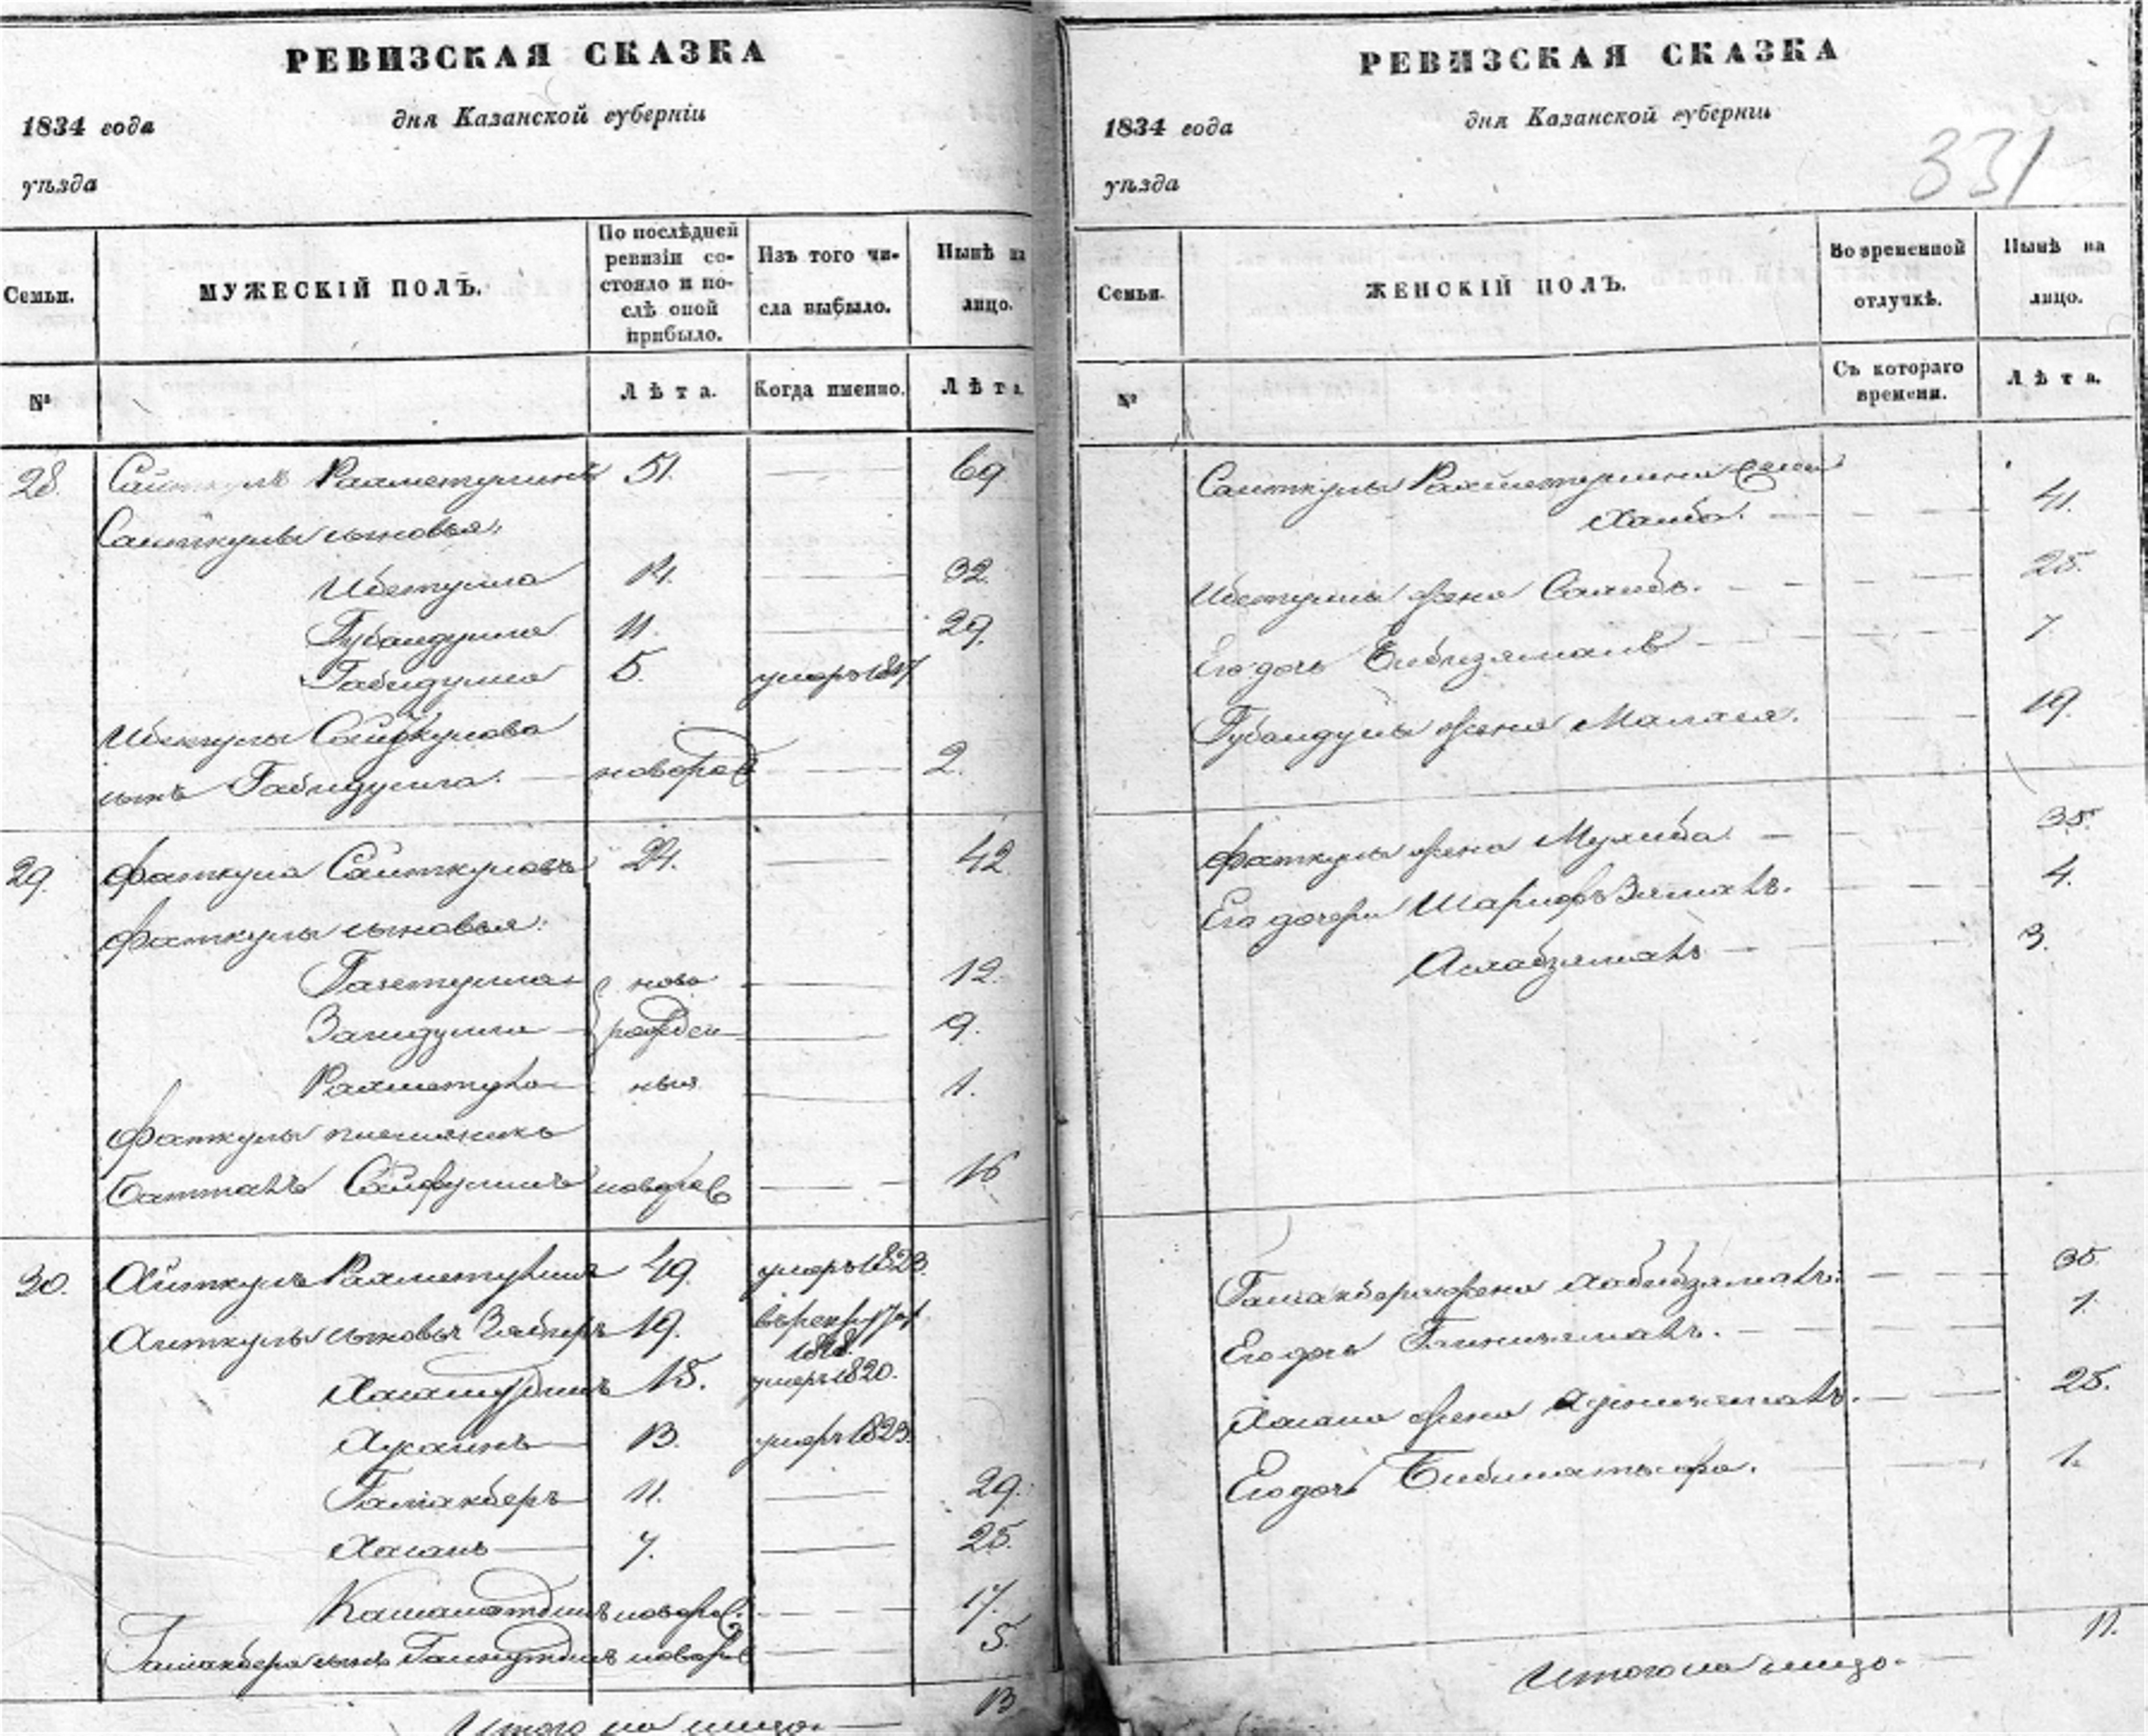 РЕВИЗСКАЯ СКАЗКА
1834 года дня Казанской губерніи
уѣзда
Семьи. МУЖЕСКІЙ ПОЛЪ. По послѣдней ревизіи состояло и послѣ оной прибыло. Изъ того числа выбыло. Нынѣ на лицо.
№ Лѣта. Когда именно. Лѣта.
28. Саиткулъ Рахметулинъ 51. 69
Саиткула сыновья:
Ибетулла 14. 32.
Губайдулла 11. 29.
Габидулла 5. умеръ 18
Ибетуллы Сайткулова
сынъ Габидулла. новорож 2.
29. Фаткула Саиткуловъ 24. 42
Фаткулы сыновья:
ново 12.
Загидулла рожден 9.
Рахметулла ныя 1.
Фаткулы племянникъ
Саттаръ Сайфуллинъ новорож 16
30. Айткулъ Рахметуллинъ 49. умеръ 1823.
Аиткула сыновья 19. въ рекруты
1818.
15. умеръ 1820.
Хусаинъ 13. умеръ 1823.
Галиакберъ 11. 29.
Хасанъ 7. 25.
новорож. 17.
Галиакбера сынъ новорож 5.
Итого на лицо. 13
РЕВИЗСКАЯ СКАЗКА
1834 года дня Казанской губерніи
уѣзда
331
Семьи. ЖЕНСКІЙ ПОЛЪ. Во временной отлучкѣ. Нынѣ на лицо.
№ Съ котораго времени. Лѣта.
Саиткула Рахметуллина жена
41.
Ибетуллы жена 25.
Его дочь Бибизямалъ 7
Губайдуллы жена 19.
Фаткулы жена 35.
Его дочери 4.
3.
Галиакбера жена Хабибзямалъ. 35.
Его дочь 7.
Хасана жена 25.
Его дочь 1.
Итого на лицо. 11.